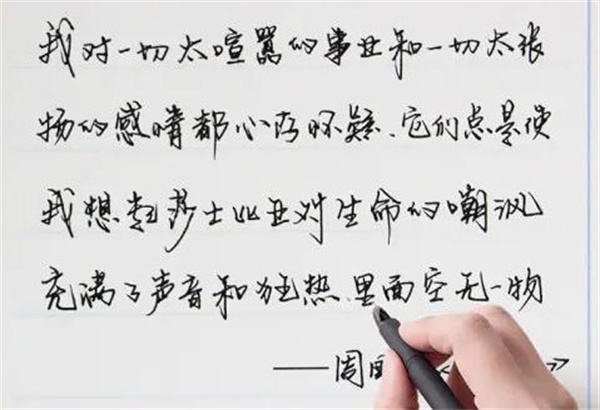 我对一切太喧嚣的事业和一切太张
扬的感情都心存怀疑,它们总是使
我想起莎士比亚对生命的嘲讽
充满了声音和狂热,里面空无一物
——周国